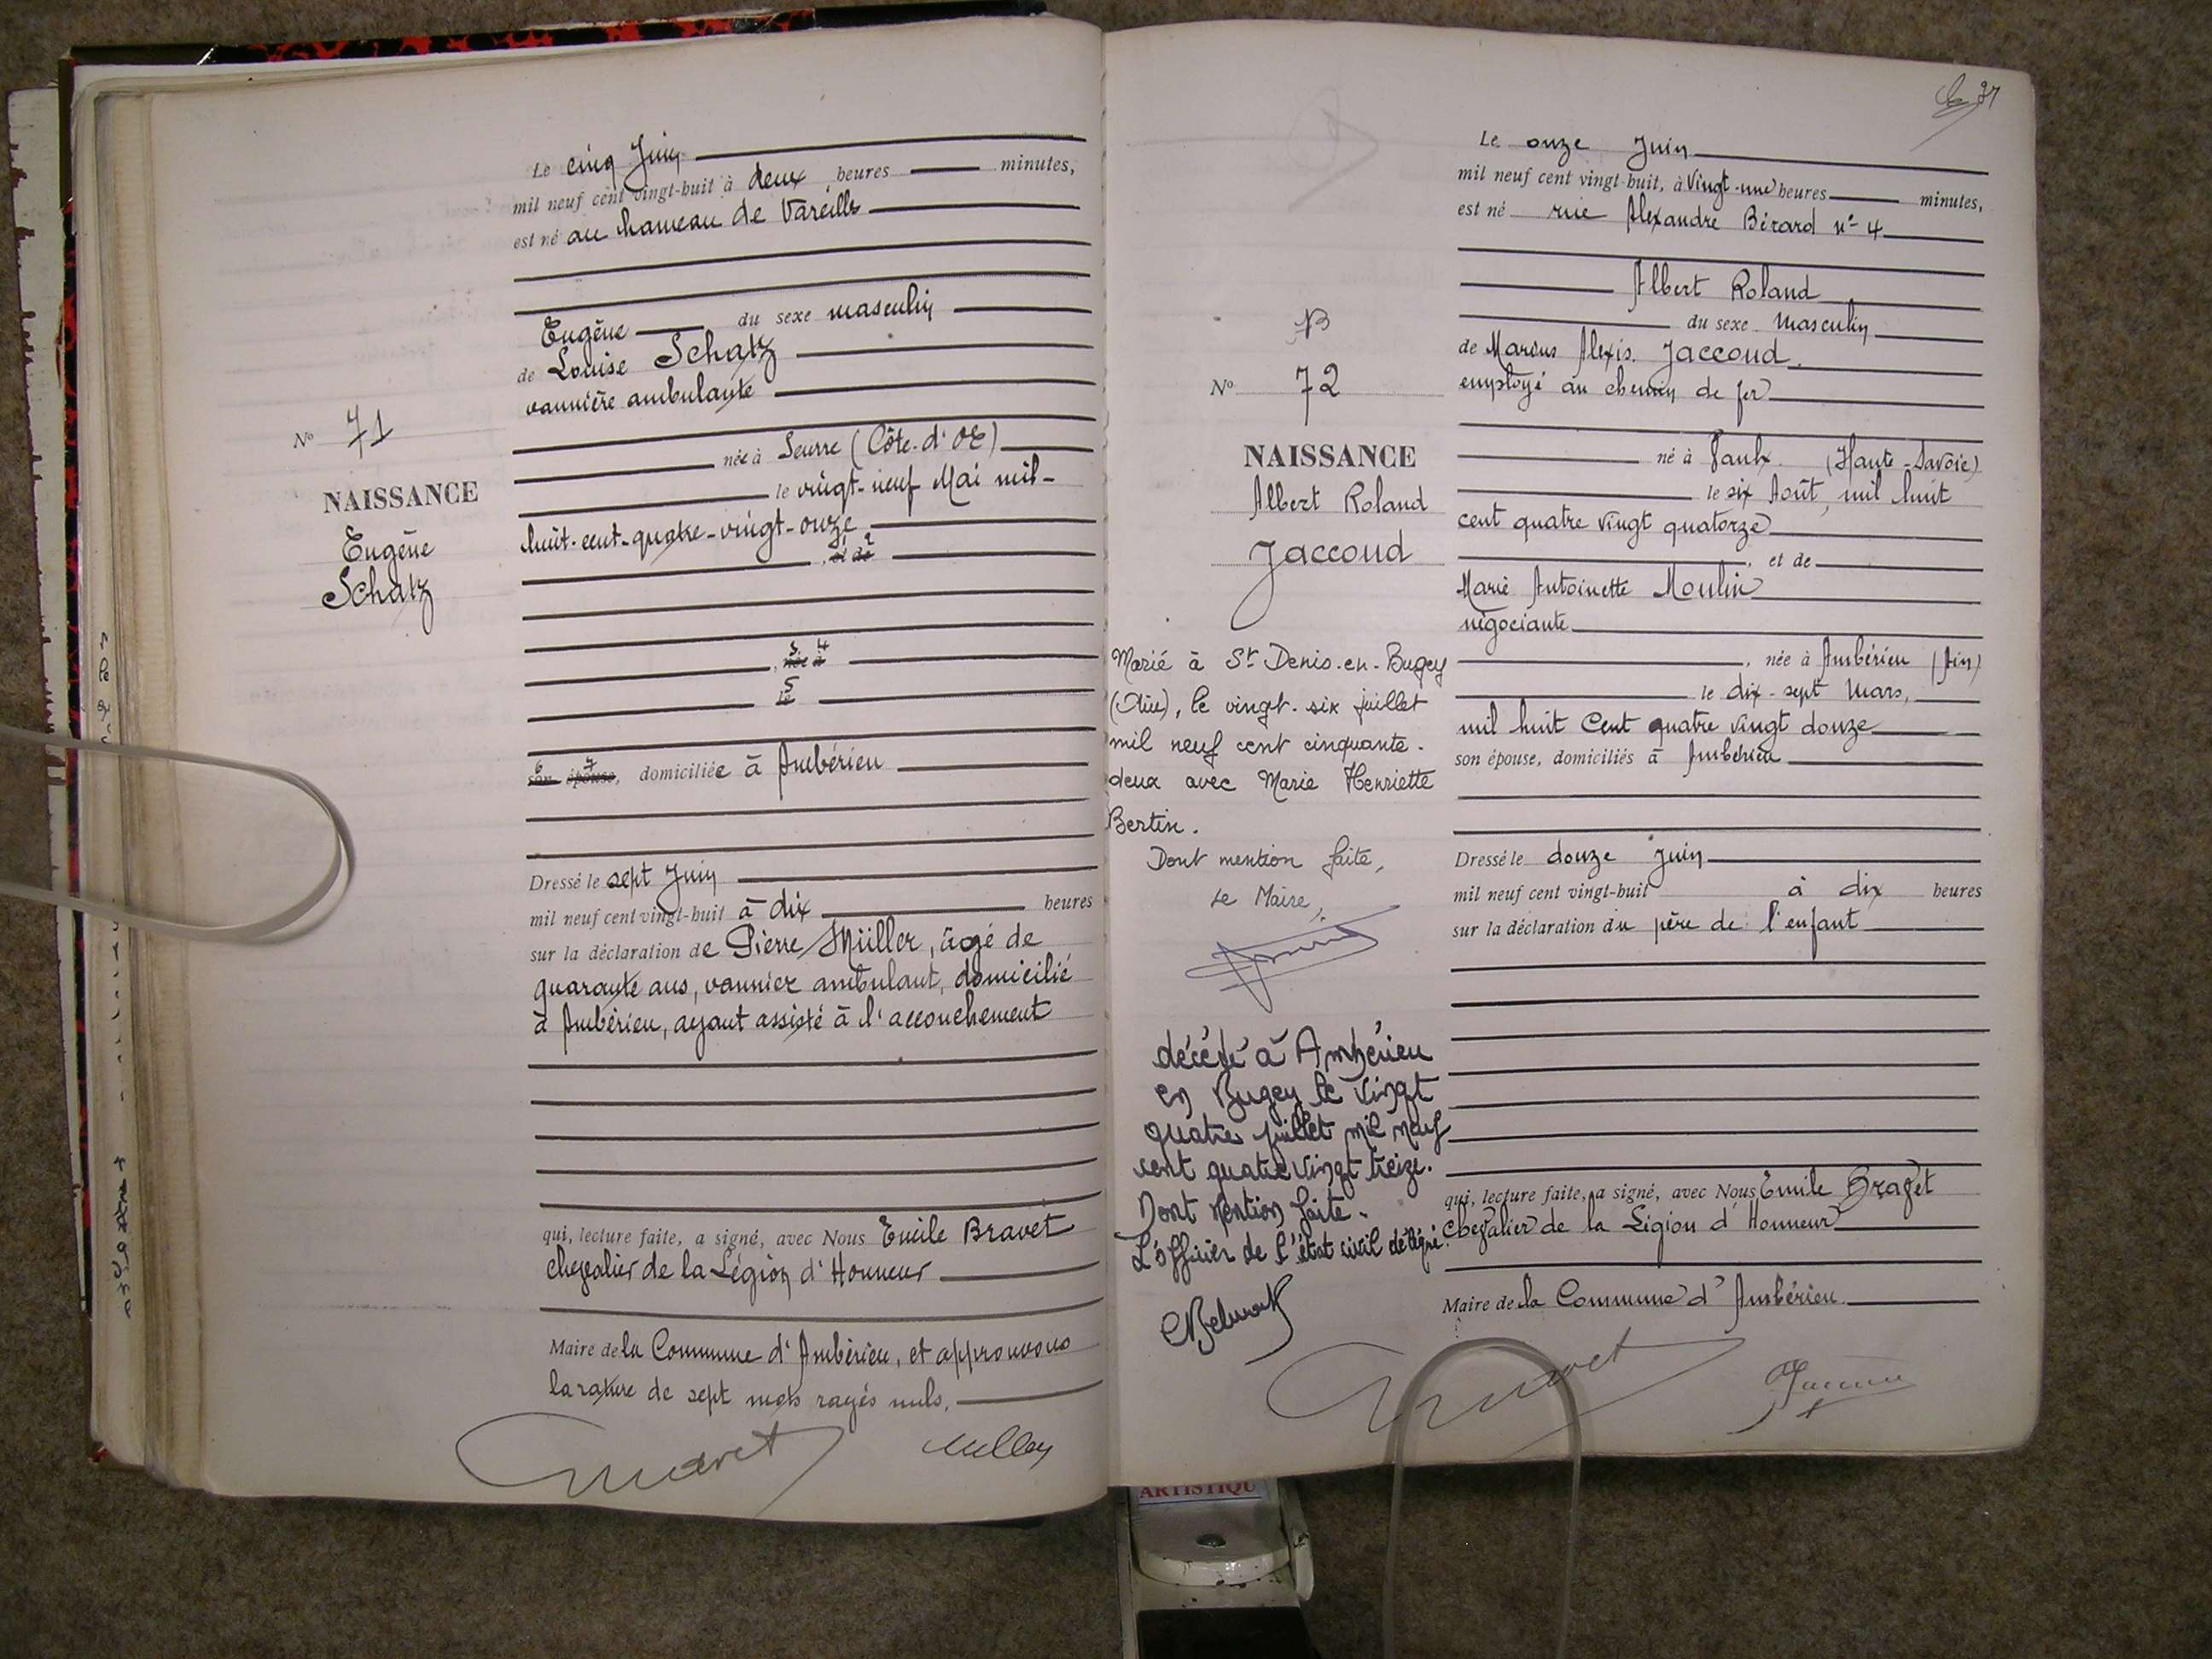 Le cinq Juin
mil neuf cent vingt-huit à deux heures minutes,
est né au hameau de Vareille
Eugène du sexe masculin
de Louise Schatz
vannière ambulante
née à Seurre (Côte-d'Or)
le vingt-neuf Mai mil-
huit-cent-quatre-vingt-onze
1 2
, et de
N° 71
NAISSANCE
Eugène
Schatz
3 4
, née à
5
le
6 7
son épouse, domiciliée à Ambérieu
Dressé le sept Juin
mil neuf cent vingt-huit à dix heures
sur la déclaration de Pierre Müller, âgé de
quarante ans, vannier ambulant, domicilié
à Ambérieu, ayant assisté à l'accouchement
qui, lecture faite, a signé, avec Nous Emile Bravet
chevalier de la Légion d'Honneur
Maire de la Commune d'Ambérieu, et approuvons
la rature de sept mots rayés nuls.
Bravet Muller
37
N° 72
NAISSANCE
Albert Roland
Jaccoud
Marié à St Denis-en-Bugey
(Ain), le vingt-six juillet
mil neuf cent cinquante-
deux avec Marie Henriette
Bertin.
Dont mention faite,
Le Maire,
décédé à Ambérieu
en Bugey le vingt
quatre juillet mil neuf
cent quatre vingt treize.
Dont mention faite.
L'officier de l'état civil délégué
Le onze Juin
mil neuf cent vingt-huit, à Vingt-une heures minutes,
est né rue Alexandre Bérard n° 4
Albert Roland
du sexe Masculin
de Marius Alexis Jaccoud
employé au chemin de fer
né à Vaulx (Haute-Savoie)
le six Août, mil huit
cent quatre vingt quatorze
, et de
Marie Antoinette Moulin
négociante
, née à Ambérieu (Ain)
le dix-sept Mars,
mil huit Cent quatre vingt douze
son épouse, domiciliés à Ambérieu
Dressé le douze Juin
mil neuf cent vingt-huit à dix heures
sur la déclaration du père de l'enfant
qui, lecture faite, a signé, avec Nous Emile Bravet
Chevalier de la Légion d'Honneur
Maire de la Commune d'Ambérieu.
Bravet
ARTISTIQU